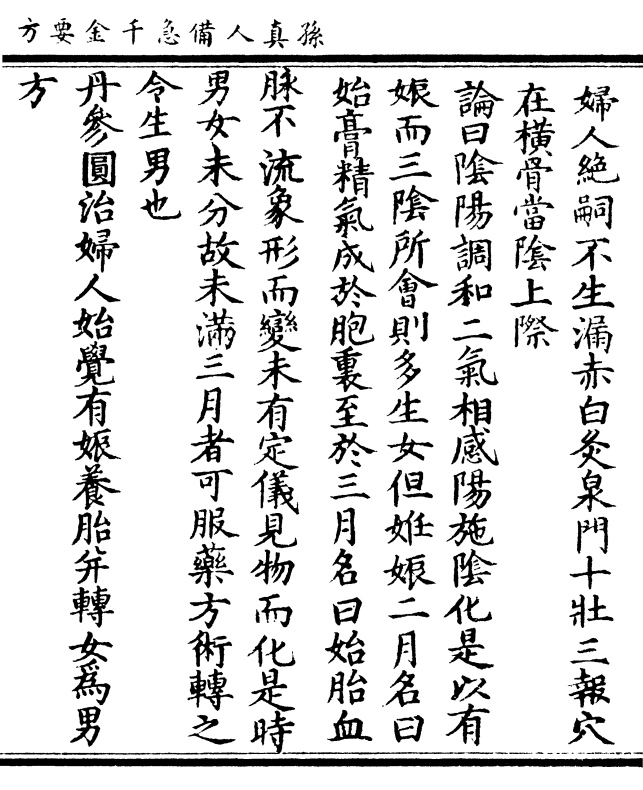 孫真人備急千金要方
婦人絶嗣不生漏赤白灸泉門十壯三報穴
在橫骨當陰上際
論曰陰陽調和二氣相感陽施陰化是以有
娠而三陰所會則多生女但姙娠二月名曰
始膏精氣成於胞裏至於三月名曰始胎血
脉不流象形而變未有定儀見物而化是時
男女未分故未滿三月者可服藥方術轉之
令生男也
丹參圓治婦人始覺有娠養胎并轉女爲男
方